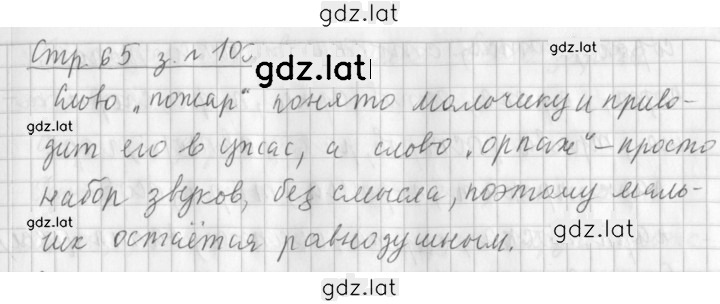 gdz.lat
Стр. 65 з. 10
gdz.lat
Слово „пожар" понято мальчику и приво-
gdz.lat
дит его в ужас, а слово „орпаж" – просто
набор звуков, без смысла, поэтому маль-
gdz.lat
чик остаётся равнодушным.
gdz.lat
gdz.lat